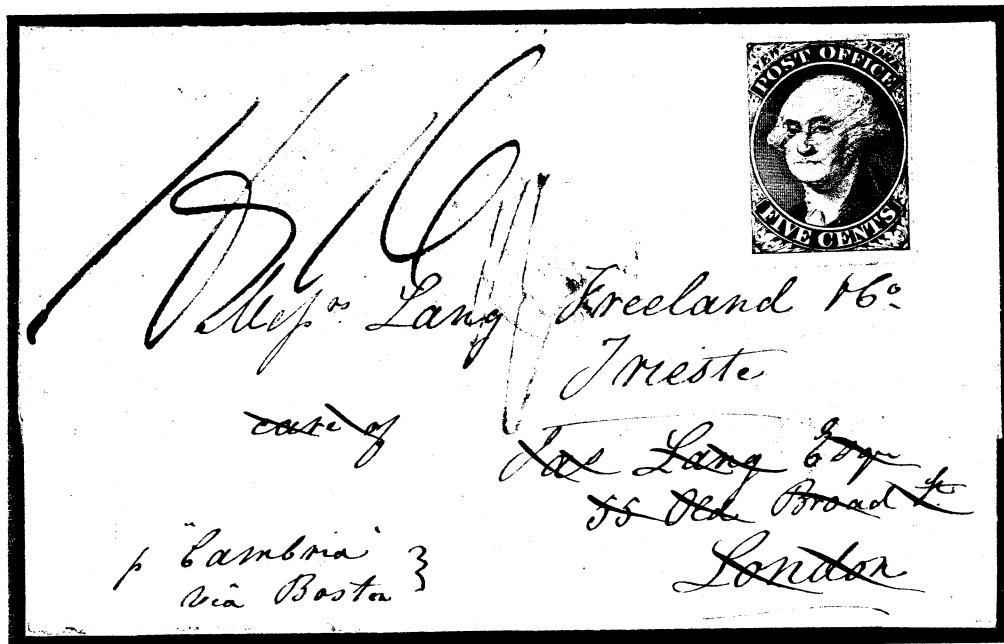 NEW YORK
POST OFFICE
FIVE CENTS
Messrs Lang Freeland & Co
Trieste
care of
Jas Lang Esqr
55 Old Broad St.
London
p "Cambria"
via Boston